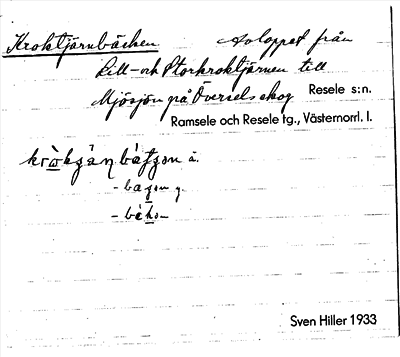 Kroktjärnbäcken Avloppet från
Lill- och Storkroktjärnen till
Mjösjön på Översels skog Resele s:n.
Ramsele och Resele tg., Västernorrl. l.
Sven Hiller 1933